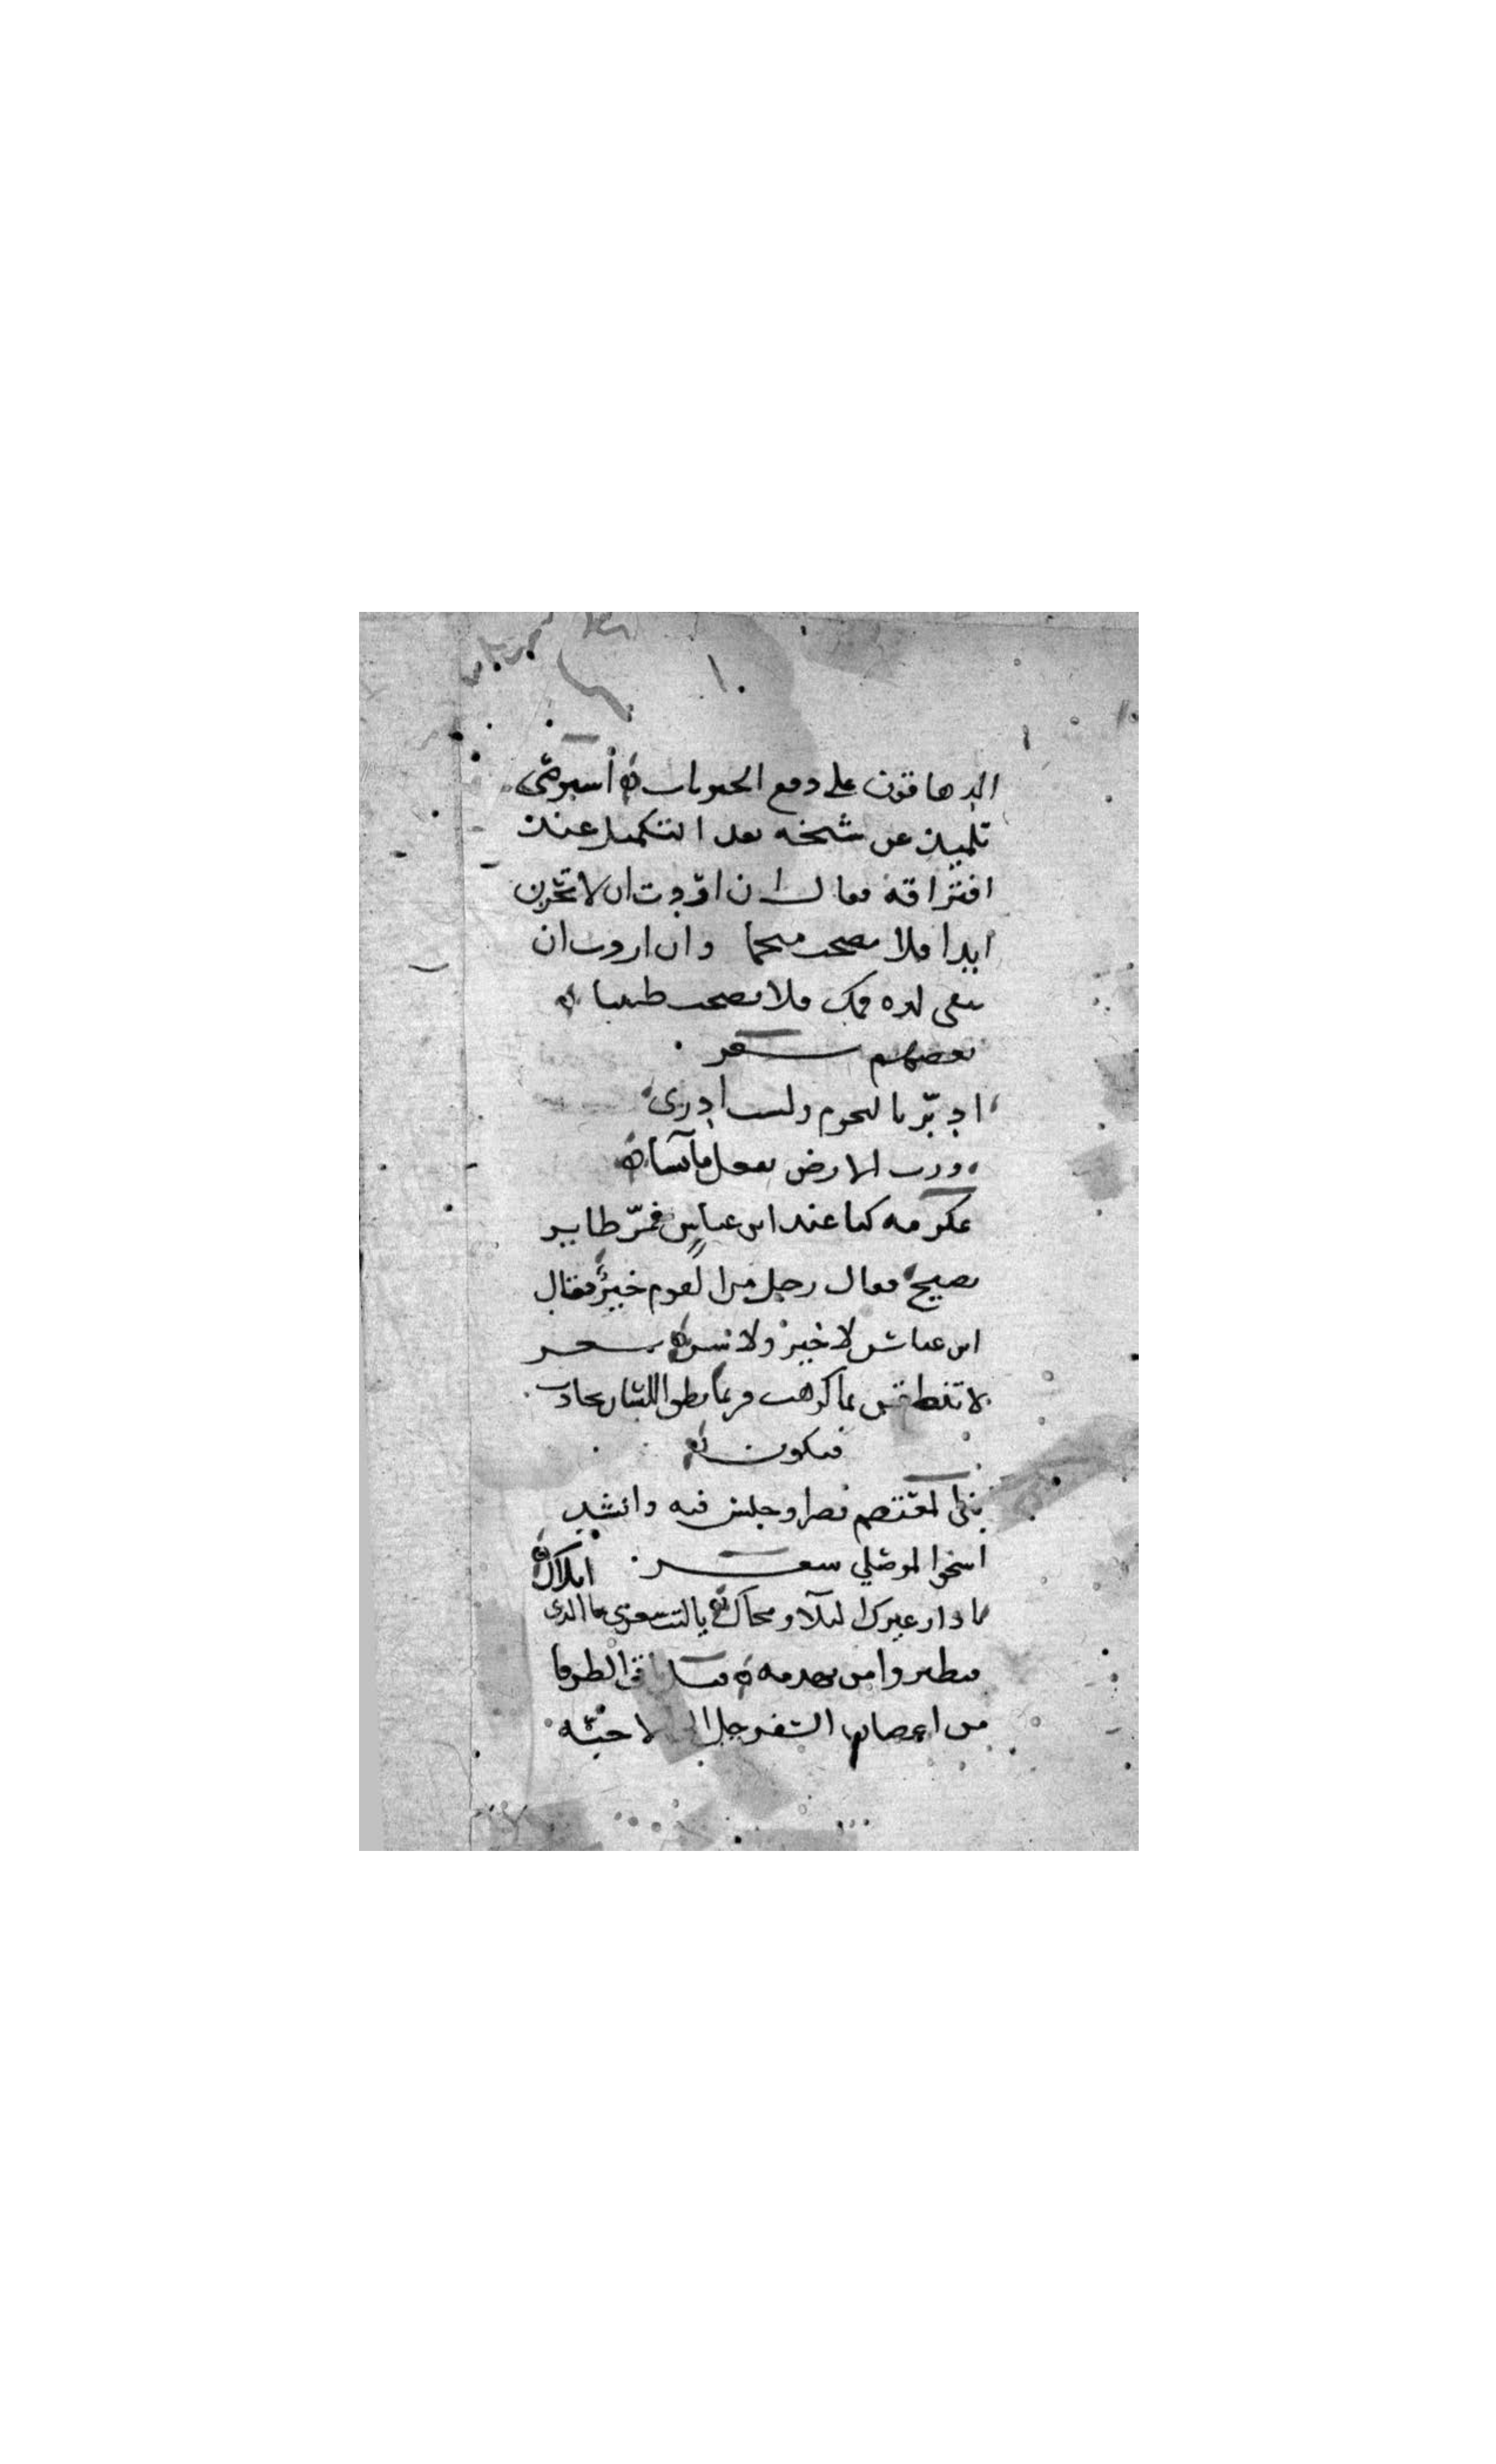 الدهاقون على دفع الحبوبات ه استوصى
تلميذ عن شيخه بعد التكميل عند
افتراقه فقال ان اردت ان لا تحزن
ابدا فلا تصحب منجما وان اردت ان
تبقى لذة فمك فلا تصحب طبيبا ه
بعضهم شعر
ادبر بالنجوم ولست ادرى
ورب الارض يفعل ما يشا ه
عكرمه كنا عند ابن عباس فمر طاير
يصيح فقال رجل من القوم خير فقال
ابن عباس لا خير ولا شر ه شعر
لا تنطقن بما كرهت فربما نطق اللسان بحادث
فيكون ه
بنى المعتصم قصرا وجلس فيه وانشد
اسحق الموصلي شعر
يا دار غيرك البلا ومحاك ه يا ليت شعرى ما الذى ابلاك ه
فتطيروا من بهدمه ه
من اغصان السفرجل الى الاحبه